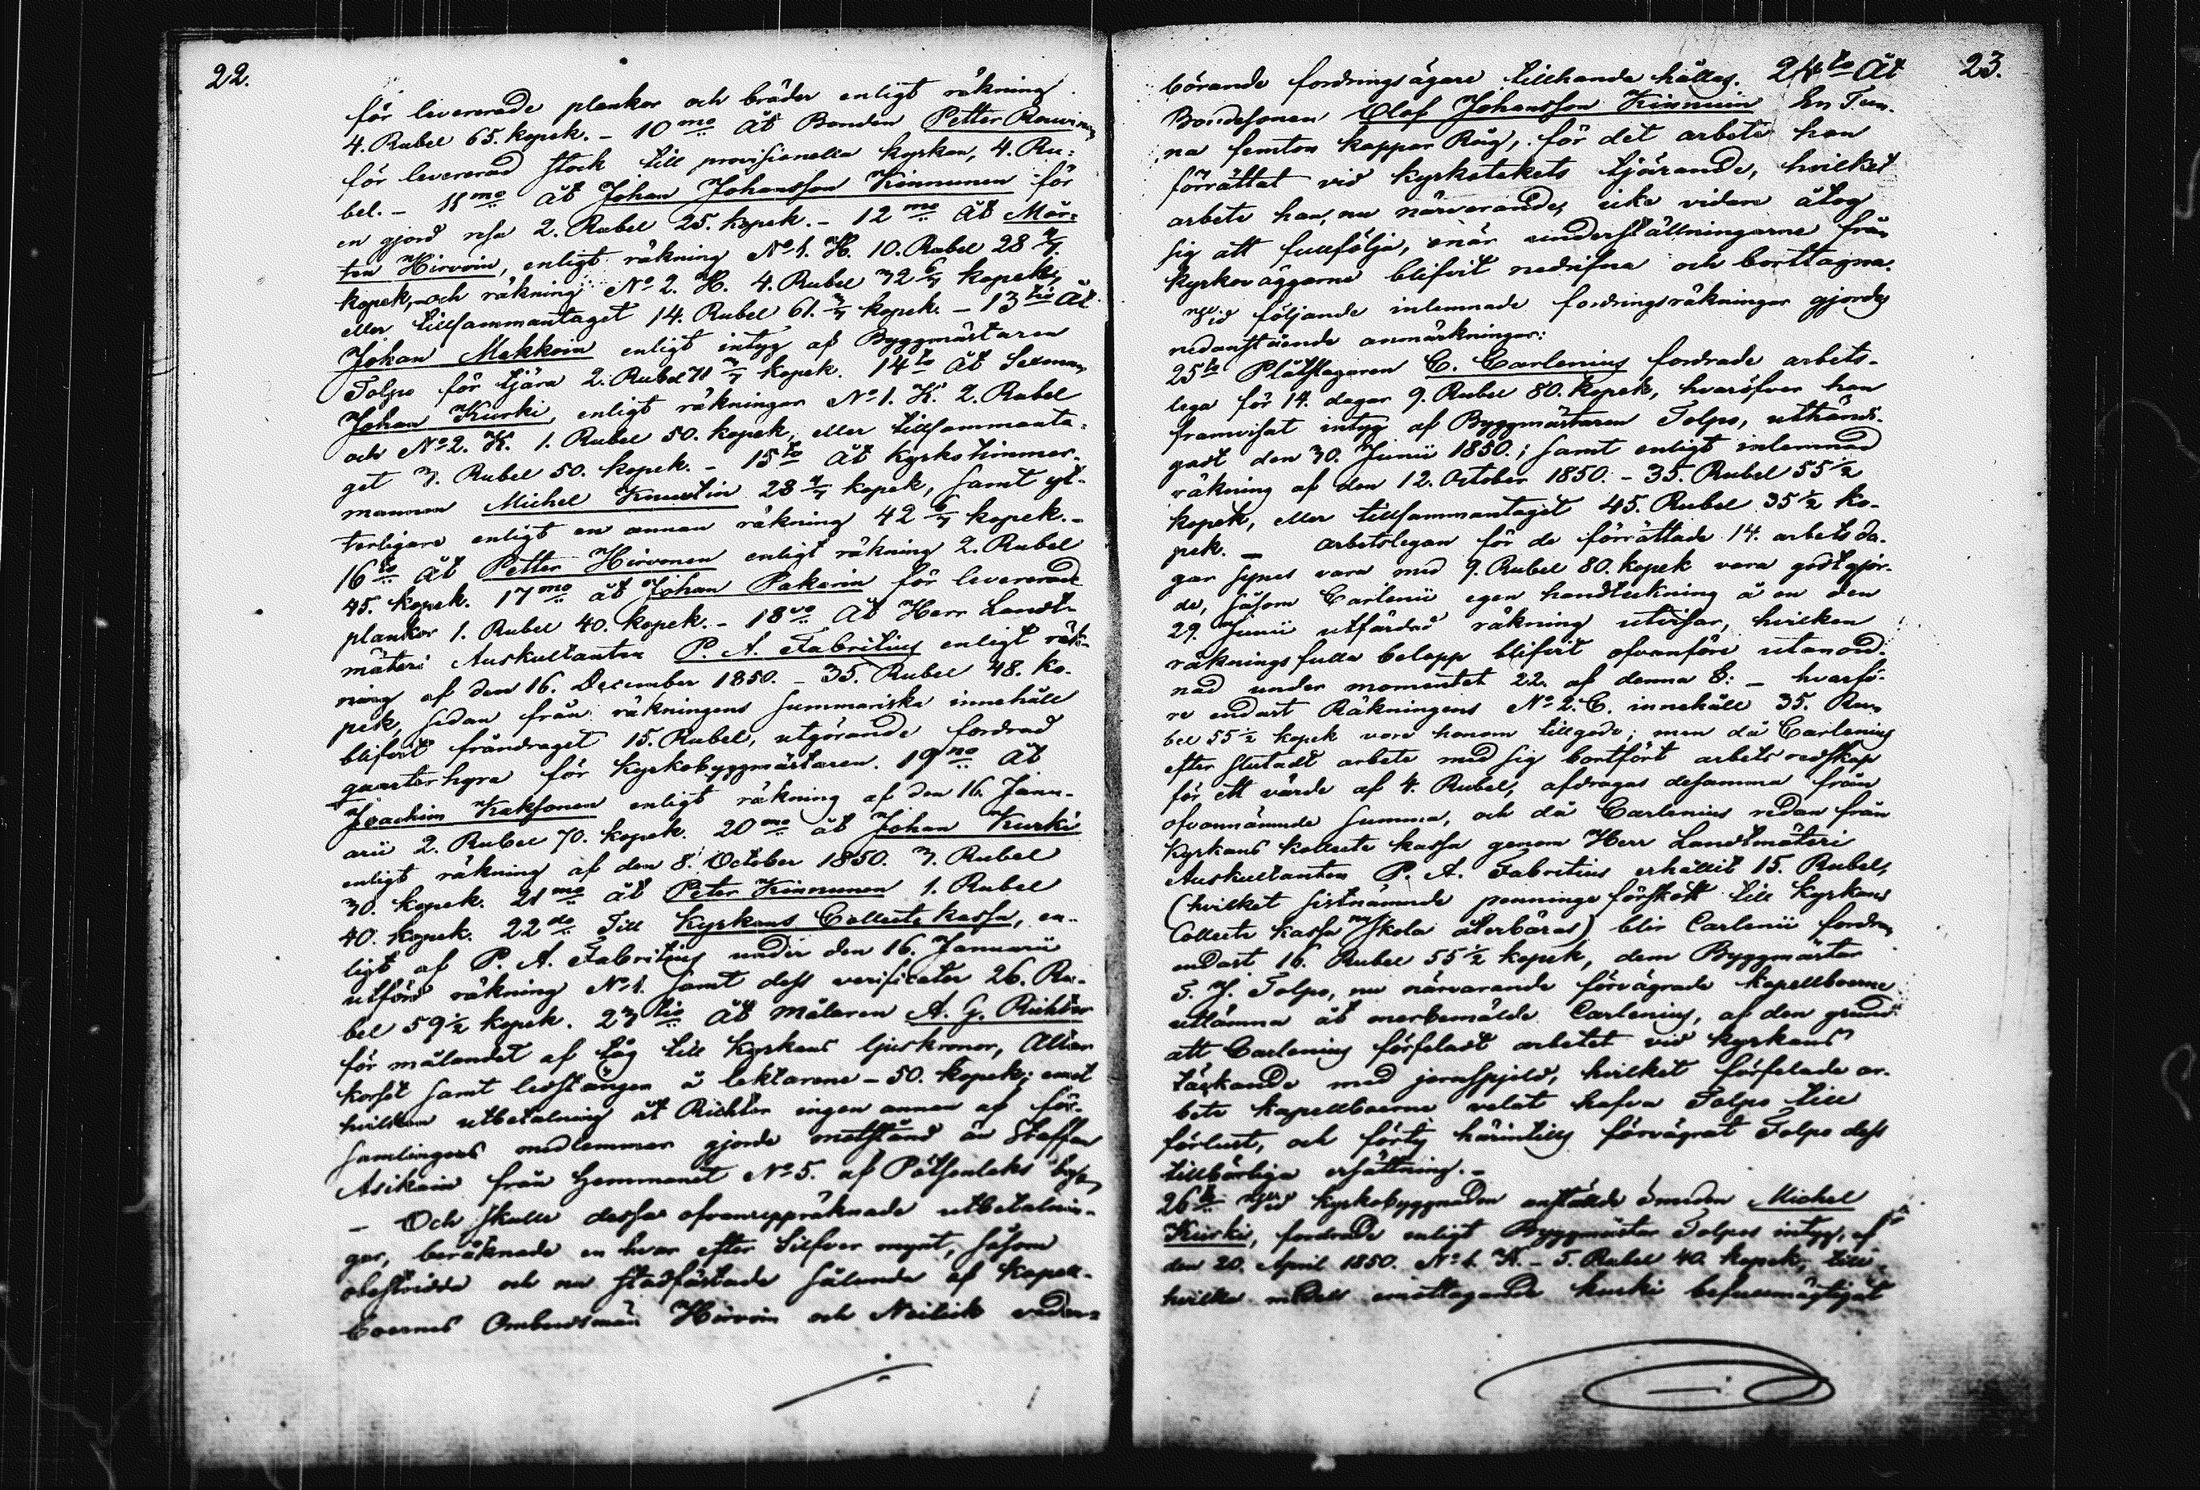 22.
för levererade plankor och bräder enligt räkning
4. Rubel 65. kopek. - 10mo Åt Bonden Petter Rouvinen
för levererad stock till provisionella kyrkan, 4. Ru-
bel. - 11mo åt Johan Johansson Kinnunen för
en gjord resa 2. Rubel 25. kopek. - 12mo Åt Mår-
ten Hirvoin, enligt räkning No 1. H. 10. Rubel 28 4/7
kopek, och räkning No 2. H. 4. Rubel 32 6/7 kopek,
eller tillsammantaget 14. Rubel 61. 3/7 kopek. - 13tio Åt
Johan Makkoin enligt intyg af Byggmästaren
Tolpo för tjära 2. Rubel 71 3/7 kopek. 14to Åt Sexman
Johan Kurki, enligt räkningar No 1. K. 2. Rubel
och No 2. K. 1. Rubel 50. kopek, eller tillsammanta-
get 3. Rubel 50. kopek. - 15to Åt kyrkotimmer-
mannen Michel Knuutin 28 4/7 kopek, samt yt-
terligare enligt en annan räkning 42 6/7 kopek. -
16to Åt Petter Hirvonen enligt räkning 2. Rubel
45. kopek. 17mo åt Johan Pakarin för levererade
plankor 1. Rubel 40. kopek. - 18vo Åt Herr Landt-
mäteri Auskultanten P. A. Fabritius enligt räk-
ning af den 16. December 1850. - 35. Rubel 48. ko-
pek, sedan från räkningens summariska innehåll
blifvit fråndraget 15. Rubel, utgörande fordrad
quarterhyra för kyrkobyggmästaren. 19no Åt
Joachim Kaksonen enligt räkning af den 16. Janu-
arii 2. Rubel 70. kopek. 20mo åt Johan Kurki
enligt räkning af den 8. October 1850. 3. Rubel
30. kopek. 21mo åt Peter Kinnunen 1. Rubel
40. kopek. 22do Till Kyrkans Collecte kassa, en-
ligt af P. A. Fabritius under den 16. Januarii
utförd räkning No 1. samt dess verificater 26. Ru-
bel 59 1/2 kopek. 23tio Åt målaren A. G. Richter
för målandet af tåg till Kyrkans ljuskronor, Altar
korset samt ledstången å lektarene - 50. kopek; emot
hvilken utbetalning åt Richter ingen annan af för-
samlingens medlemmar gjorde motstånd än Staffan
Asikain från hemmanet No 5. af Pötsönleks by.
- Och skulle dessa ofvanuppräknade utbetalnin-
gar, beräknade en hvar efter Silfver mynt, såsom
obestridda och nu stadfästade sålunda af kapell-
boernes Ombudsmän Hirvoin och Neilick veder-
23.
börande fordringsägare tillhanda hållas. 24to Åt
Bondesonen Olof Johansson Kinnuin En Tun-
na femton kappar Råg, för det arbete han
förrättat vid kyrkotakets tjärande, hvilket
arbete han, nu närvarande, icke vidare åtog
sig att fullfölja, enär underställningarne från
kyrkoväggarne blifvit nedrifna och borttagna.
Vid följande inlemnade fordringsräkningar gjordes
nedanstående anmärkningar:
25to Plåtslagaren C. Carlenius fordrade arbets-
lega för 14. dagar 9. Rubel 80. kopek, hvaröfver han
framvisat intyg af Byggmästaren Tolpo, uthändi-
gadt den 30. Junii 1850.; samt enligt inlemnad
räkning af den 12. October 1850. - 35. Rubel 55 1/2
kopek, eller tillsammantaget 45. Rubel 35 1/2 ko-
pek. - arbetslegan för de förrättade 14. arbetsda-
gar synes vara med 9. Rubel 80. kopek vara godtgjor-
de, såsom Carlenii egen handteckning å en den
29. Junii utfärdad räkning utvisar, hvilken
räknings fulla belopp blifvit ofvanföre utanord-
nad under momentet 22. af denna §: - hvarfö-
re endast Räkningens No 2. C. innehåll 35. Ru-
bel 55 1/2 kopek vore honom tillgodo; men då Carlenius
efter slutadt arbete med sig bortfört arbetsredskap
för ett värde af 4. Rubel, afdrages desamma från
ofvannämnde summa, och då Carlenius redan från
Kyrkans kollecte kassa genom Herr Landtmäteri
Auskultanten P. A. Fabritius erhållit 15. Rubel,
(hvilket sistnämnde penninge förskott till kyrkans
Collecte kassa skola återbäras) blir Carlenii fordran
endast 16. Rubel 55 1/2 kopek, dem Byggmästar
T. J. Tolpo, nu närvarande förvägrade kapellboerne
utlämna åt merbemälde Carlenius, af den grund
att Carlenius förfelast arbetet vid kyrkans
täckande med jernspjeld, hvilket förfelade ar-
bete kapellboerne velat hafva Tolpo till
förlust, och förty härintills förvägrat Tolpo dess
tillbörliga ersättning. -
26to Vid kyrkobyggnaden anstälde Smeden Michel
Kurki, fordrade enligt Byggmästar Tolpos intyg, af
den 20. April 1850. No 1. K. - 5. Rubel 40. kopek, till
hvilka medels emottagande Kurki befullmägtigat